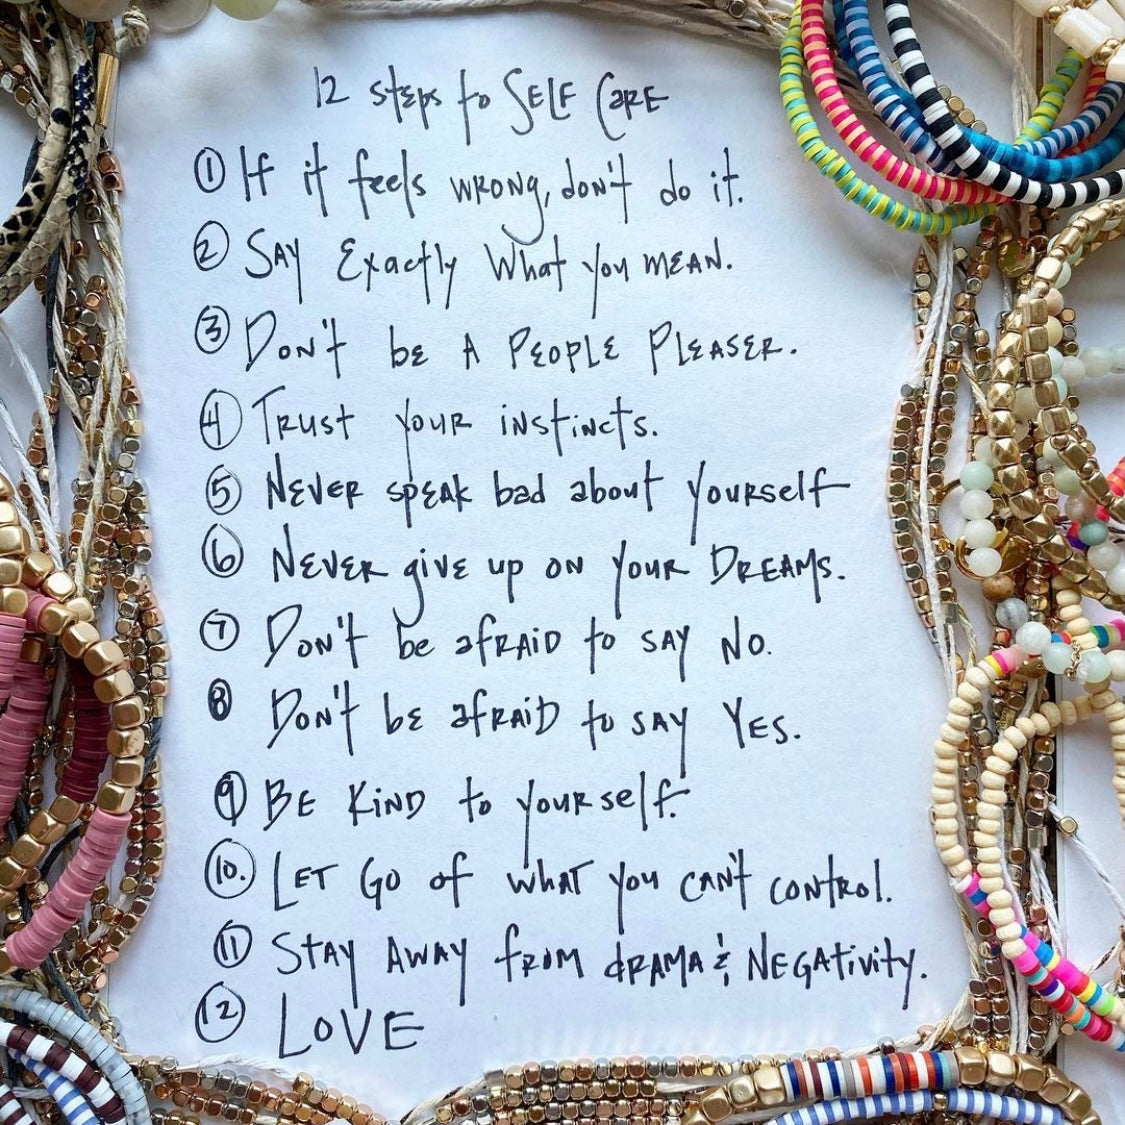 12 Steps to SELF CARE
① If it feels WRONG, don't do it.
② SAY Exactly What you MEAN.
③ DON't be A PEOPLE PLEASER.
④ TRUST YOUR instincts.
⑤ NEVER SPEAK bad about yourself
⑥ NEVER give up ON YOUR DREAMS.
⑦ DON't be afraid to SAY NO.
⑧ DON't be afraid to SAY YES.
⑨ BE KIND to yourself.
⑩. LET GO of what you can't control.
⑪ STAY AWAY from dRAMA & NEGAtivity.
⑫ LOVE